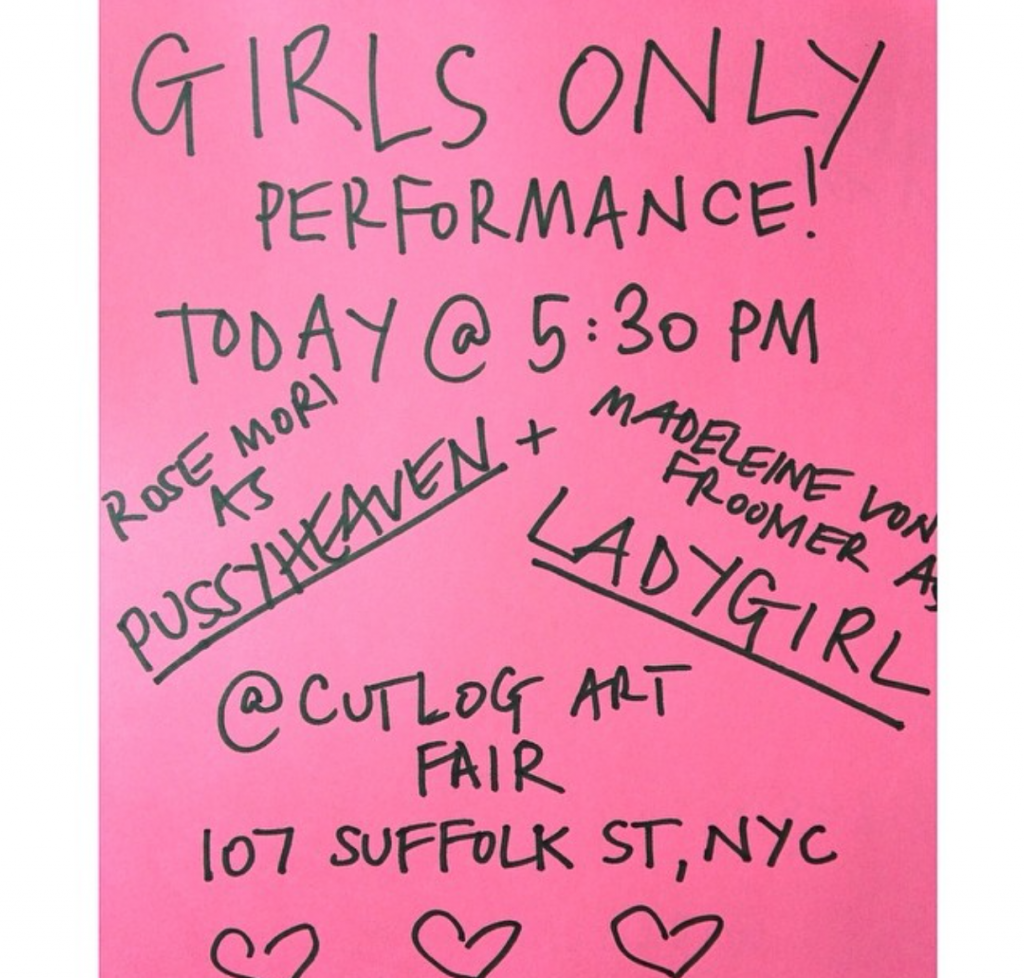 GIRLS ONLY
PERFORMANCE!
TODAY @ 5:30 PM
ROSE MORI
AS
PUSSYHEAVEN
+
MADELEINE VON
FROOMER AS
LADYGIRL
@CUTLOG ART
FAIR
107 SUFFOLK ST, NYC